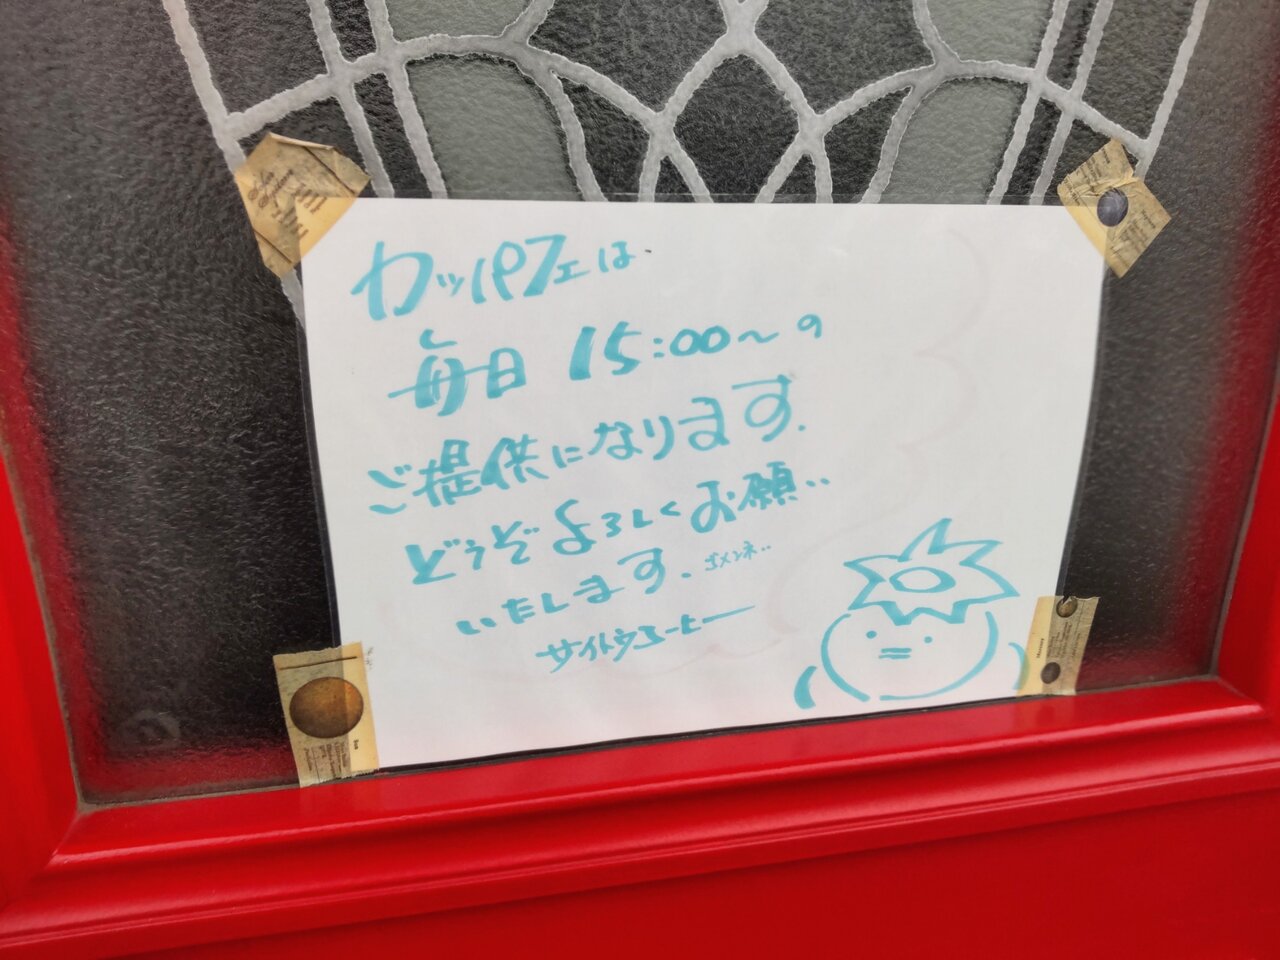 カッパフェは
毎日 15:00〜の
ご提供になります.
どうぞよろしくお願い
いたします. ゴメンネ..
サイトウコーヒー